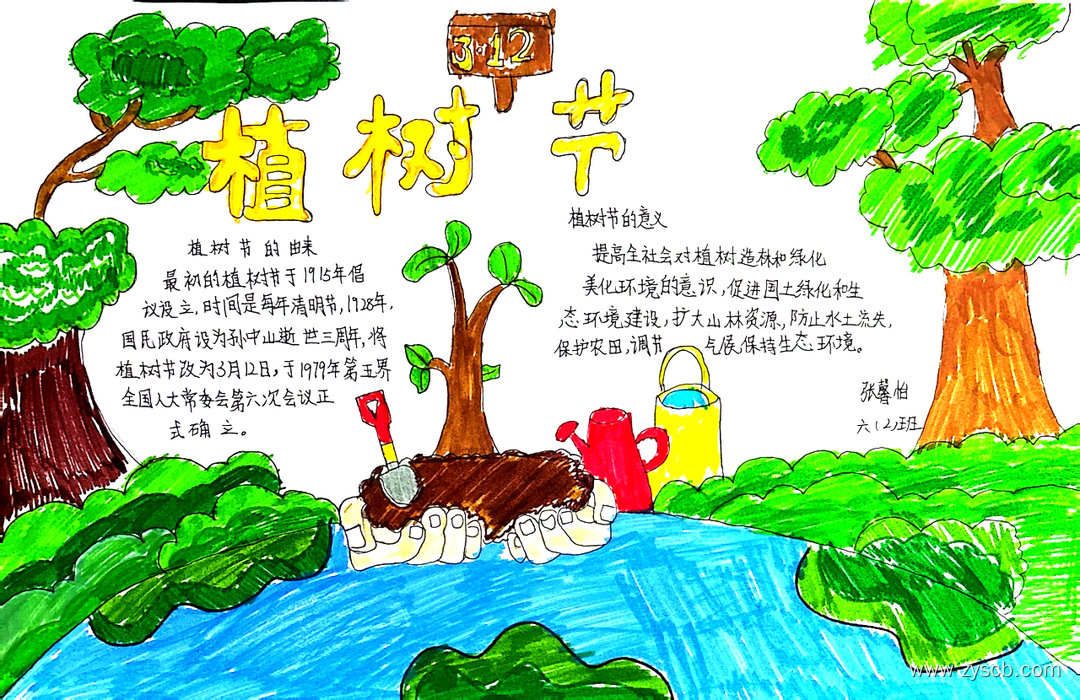 3·12
植树节
植树节的由来
最初的植树节于1915年倡
议设立,时间是每年清明节,1928年,
国民政府设为孙中山逝世三周年,将
植树节改为3月12日,于1979年第五界
全国人大常委会第六次会议正
式确立。
植树节的意义
提高全社会对植树造林和绿化
美化环境的意识,促进国土绿化和生
态环境建设,扩大山林资源,防止水土流失,
保护农田,调节气候,保持生态环境。
张馨怡
六(2)班
www.zyscb.com